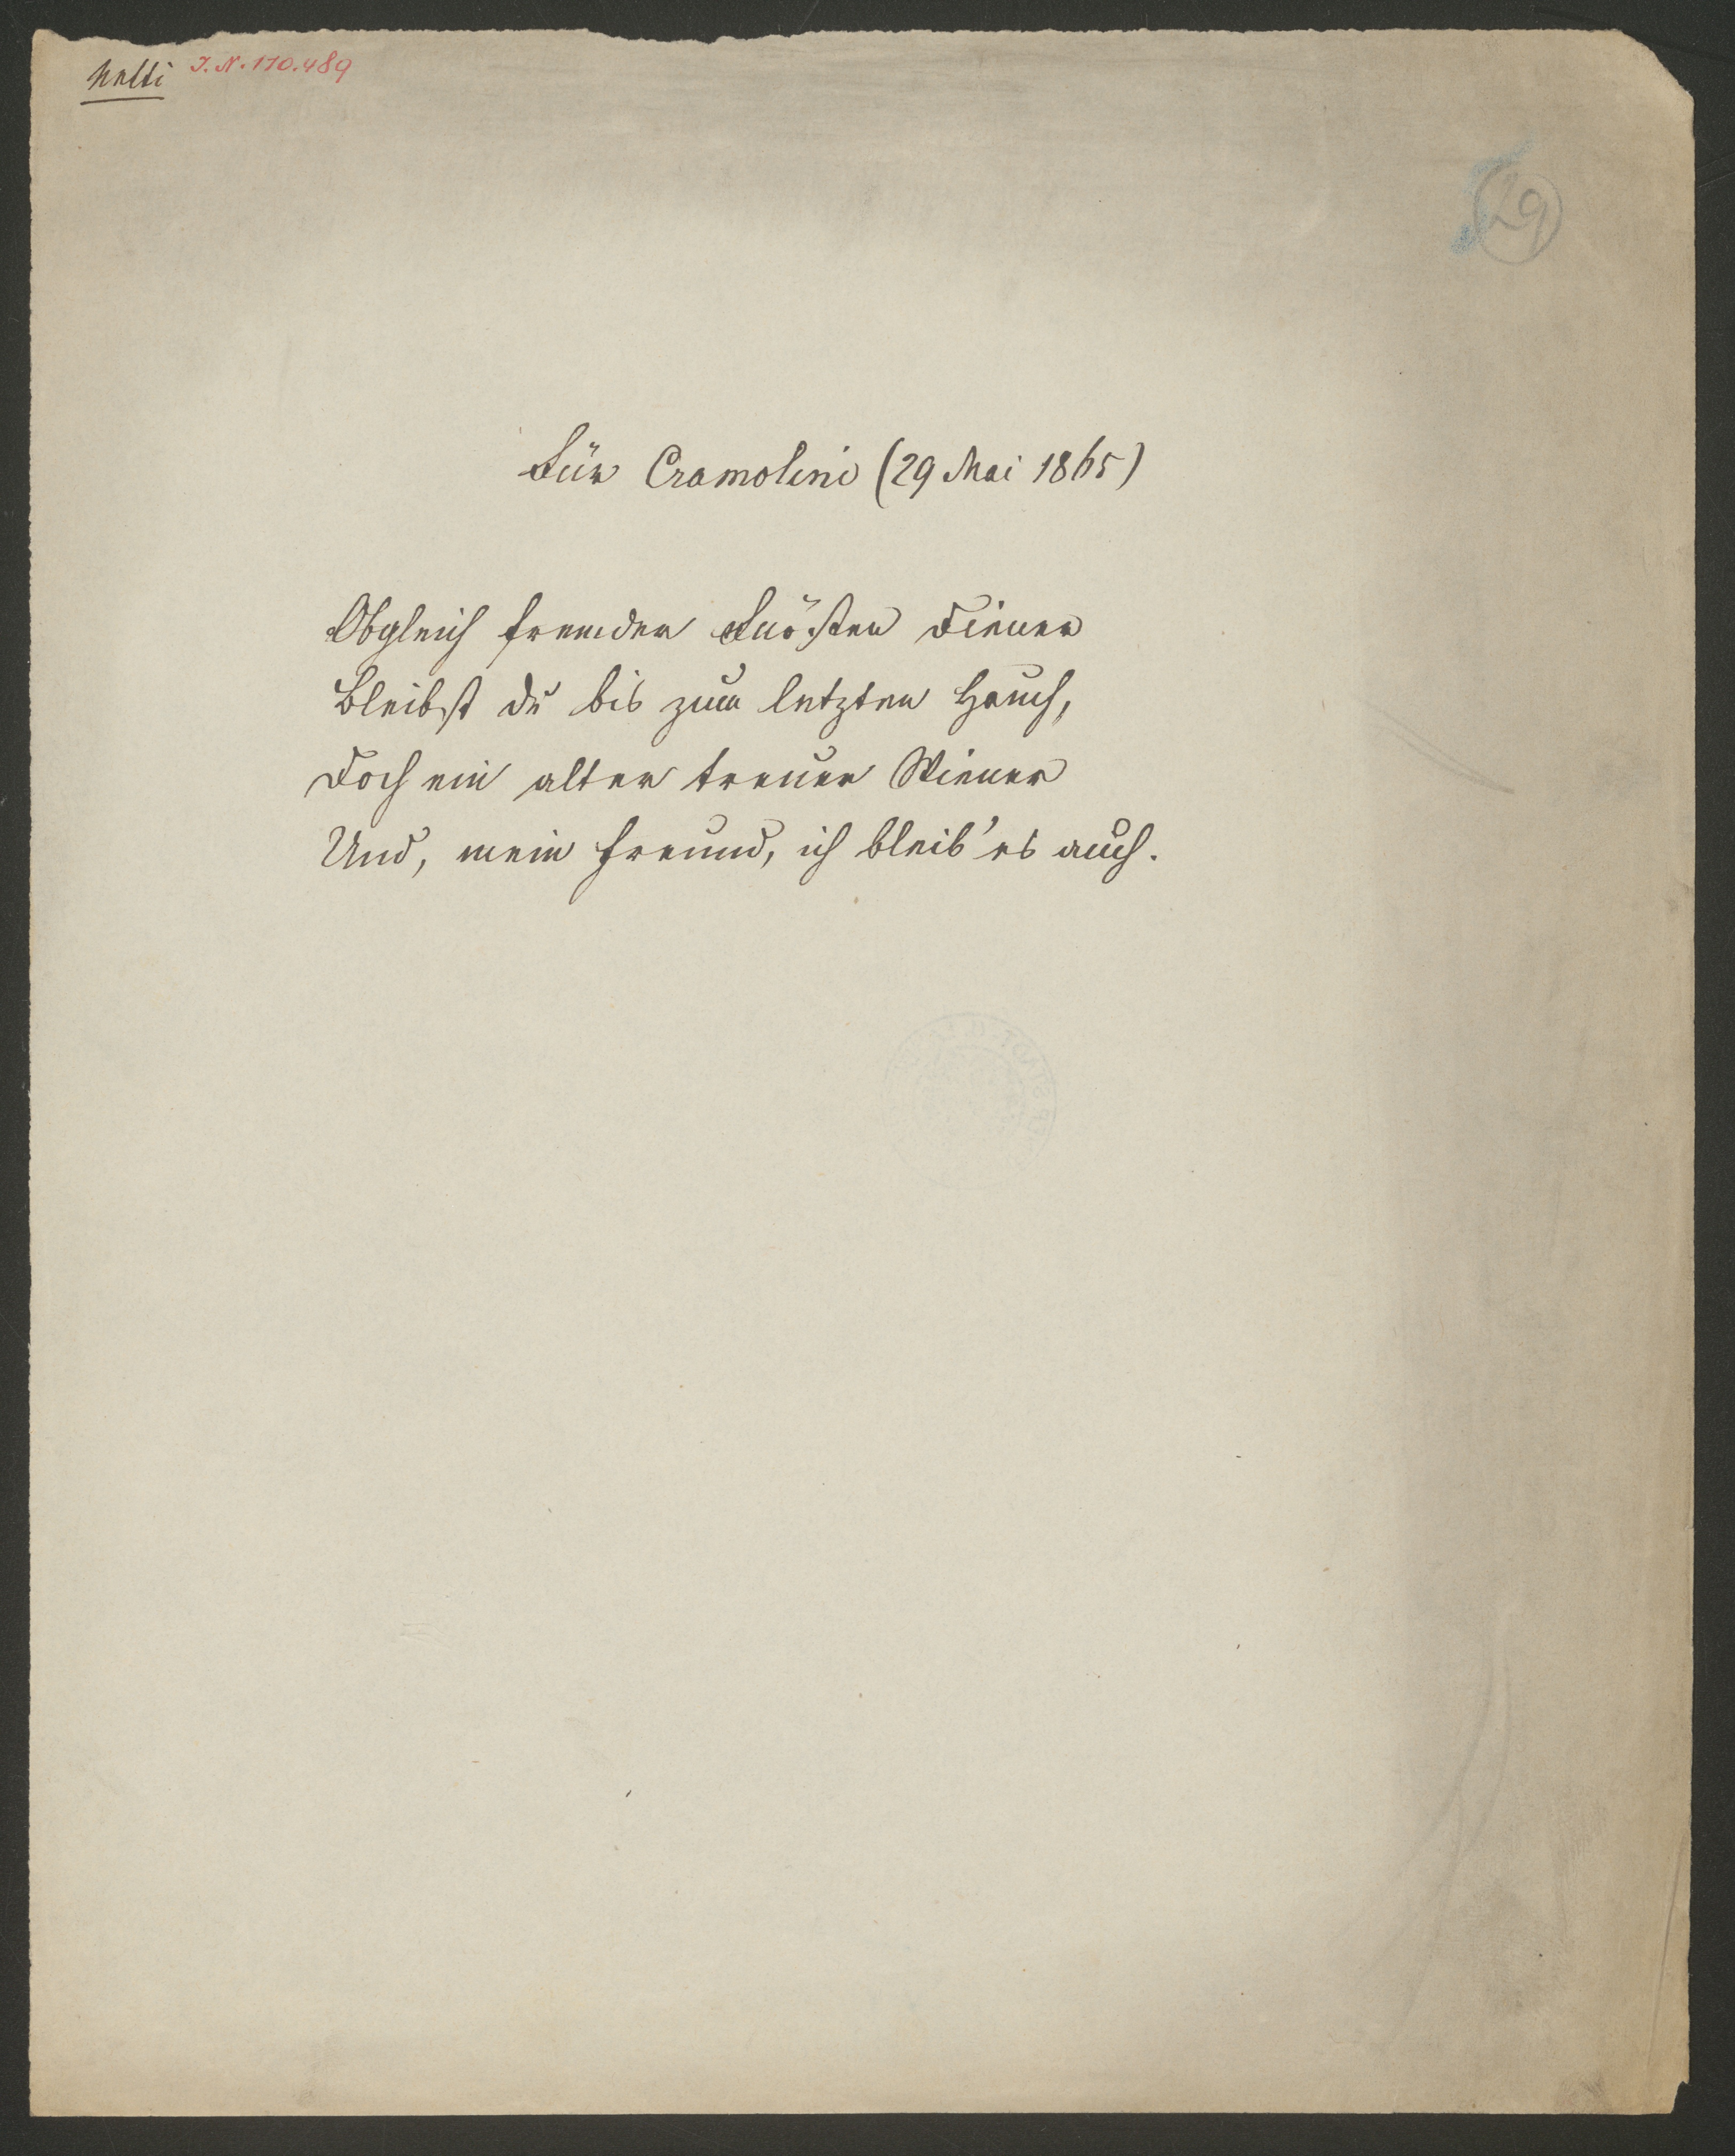 J. N. 170.489
29
Für Cramolini (29 Mai 1865)
Obgleich fremder Fürsten Diener
Bleibst du bis zum letzten Hauch,
Doch ein alter treuer Wiener
Und, mein Freund, ich bleib' es auch.